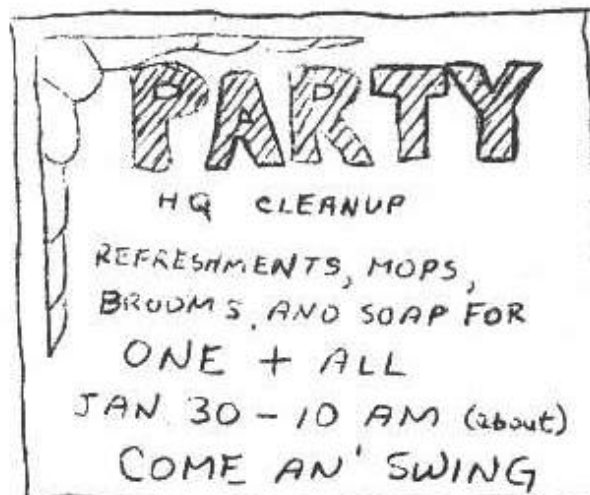 PARTY
HQ CLEANUP
REFRESHMENTS, MOPS,
BROOMS, AND SOAP FOR
ONE + ALL
JAN 30 - 10 AM (about)
COME AN' SWING